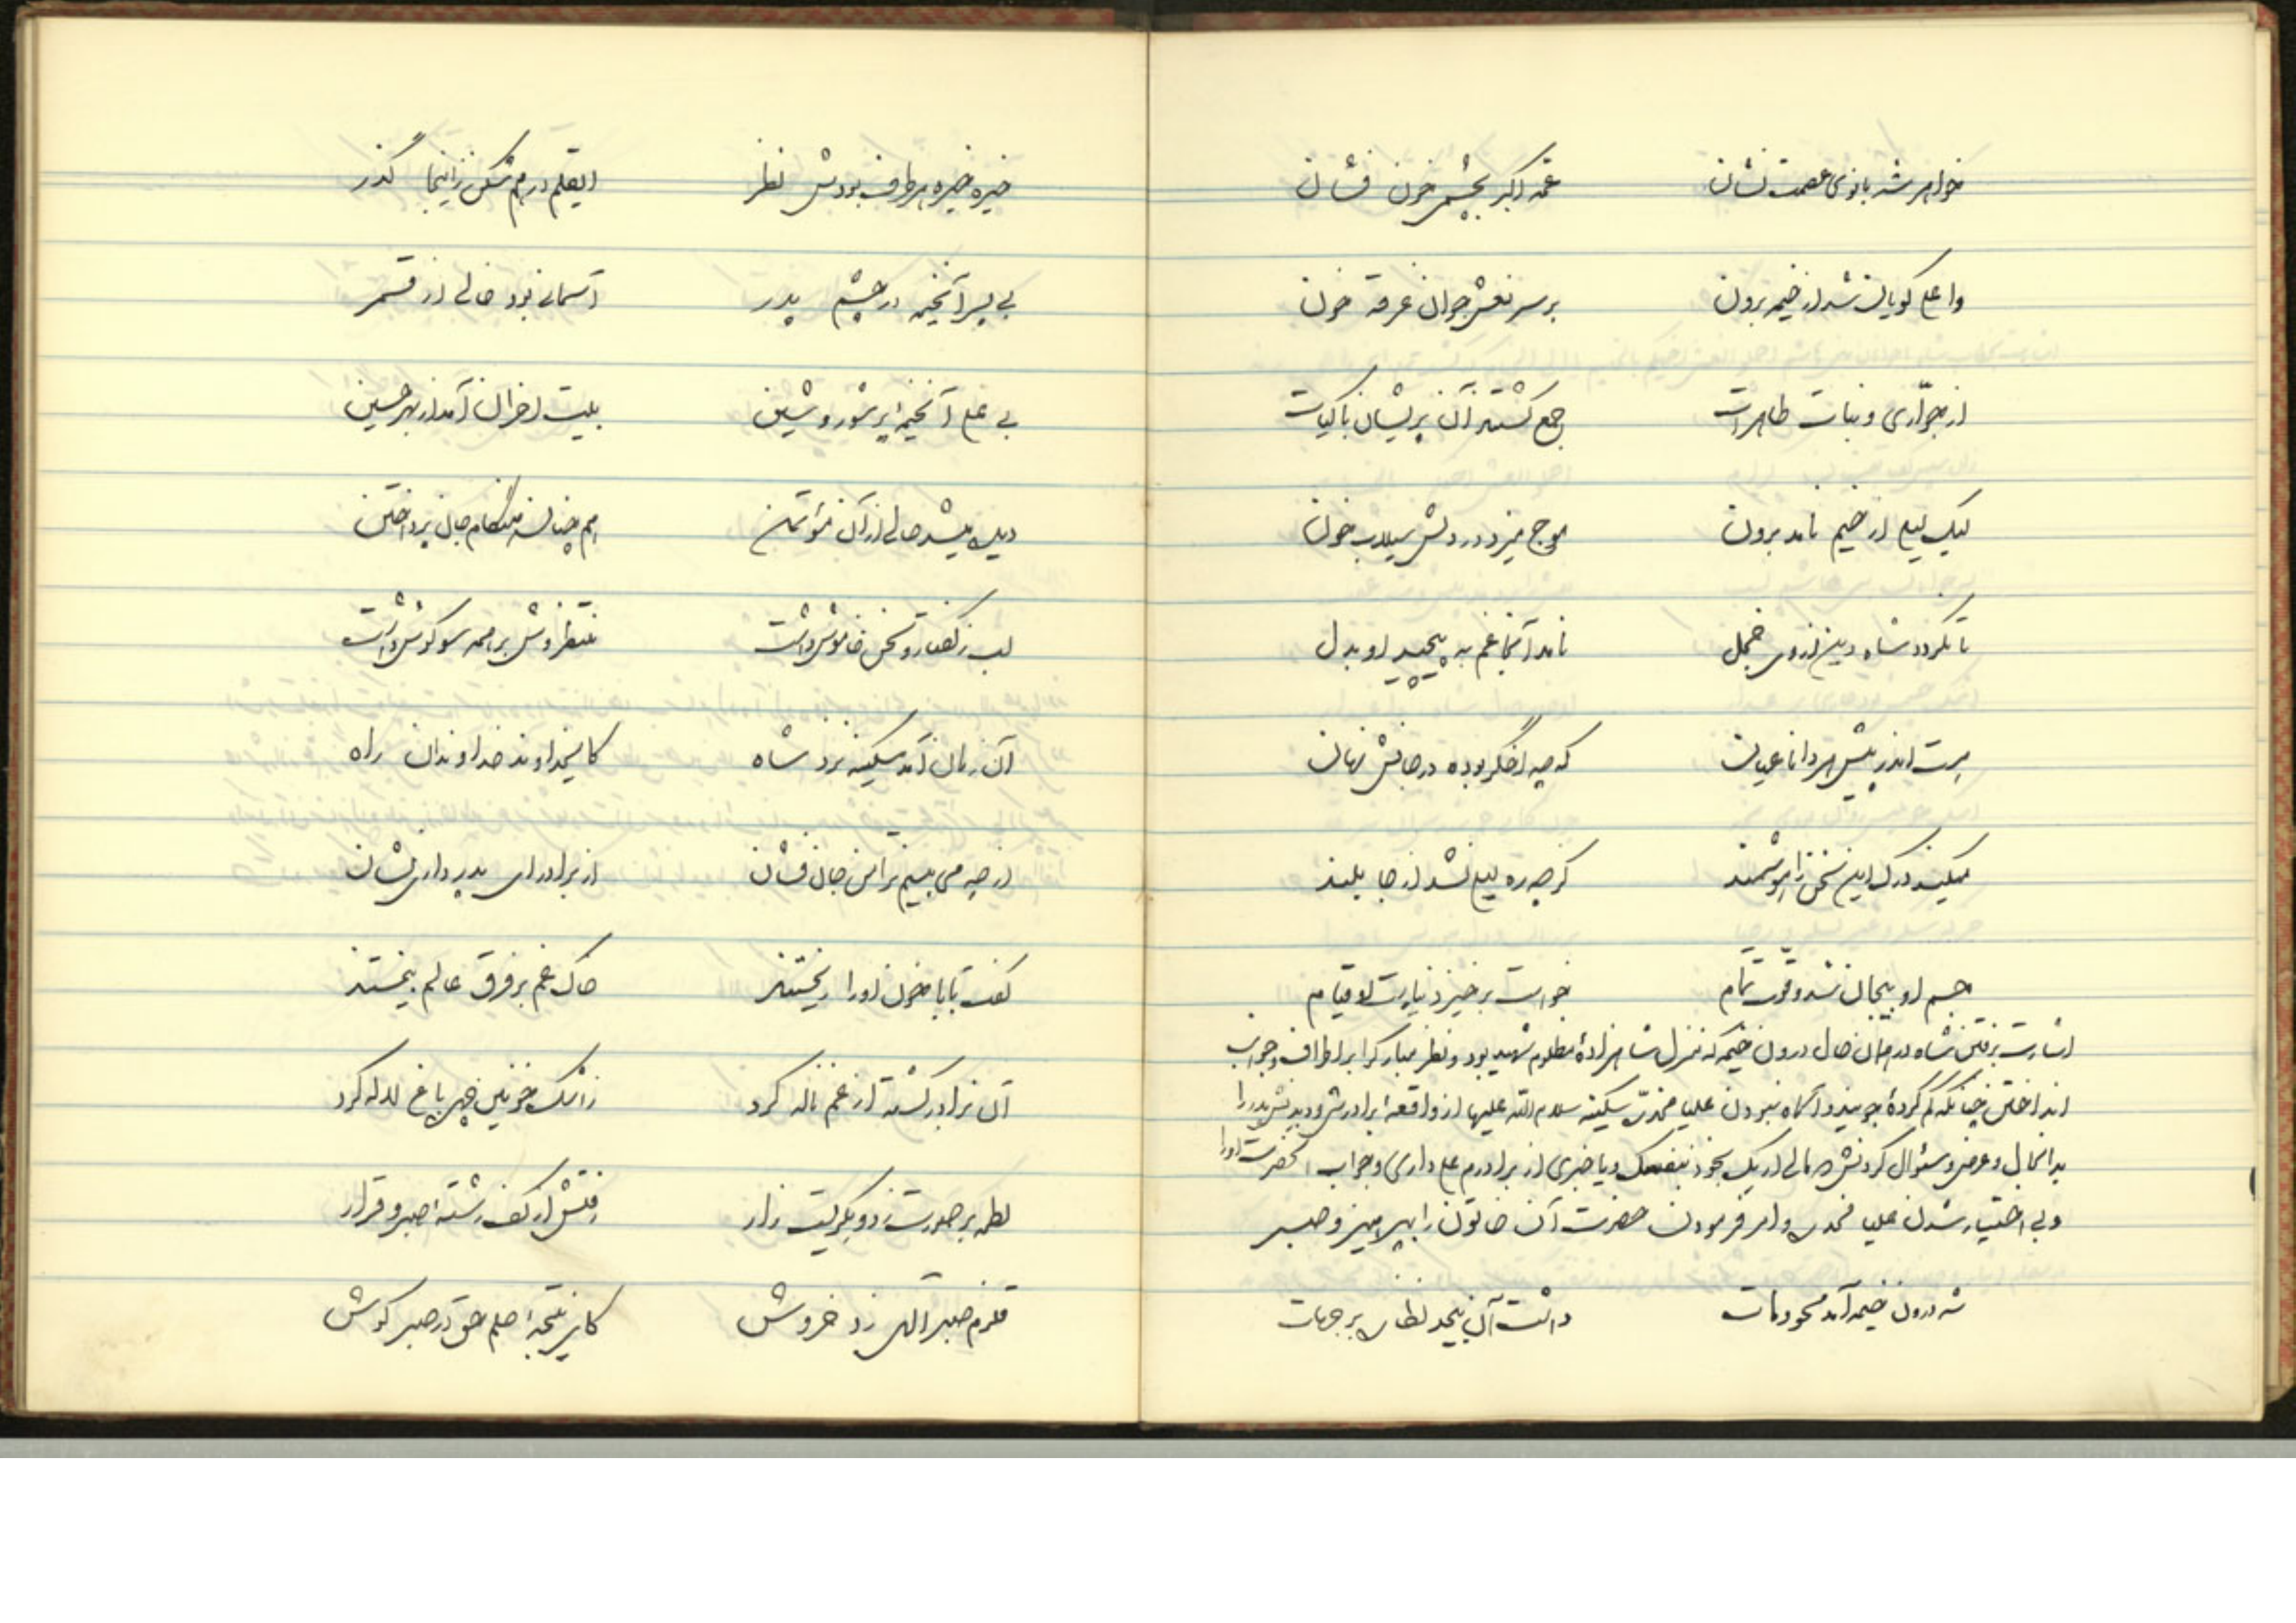 خواهر شه بانوی عصمت نشان    عمهٔ اکبر بچشم خون فشان
وا علی گویان شد از خیمه برون    بر سر نعش جوان غرقه خون
از جواری و بنات طاهرات    جمع گشتند آن پریشان باکیات
لیک لیلی از خیم نامد برون    موج میزد در دلش سیلاب خون
تا نگردد شاه دین از وی خجل    نامد آنجا غم به پیچید او بدل
هست اندر پیش هر دانا عیان    که چه اخگر بوده در جانش نهان
میکند درک این سخن را هوشمند    گرچه ره لیلی نشد از جا بلند
جسم او بیجان شد و قوت تمام    خواست برخیزد نیارست او قیام
اشارت برفتن شاه در همان حال درون خیمه که منزل شاهزادهٔ مظلوم شهید بود و نظر مبارک را بر اطراف و جوانب
انداختن چنانکه گم کردهٔ جویند و آگاه نبودن علیا مخدره سکینه سلام الله علیها از واقعهٔ برادرش و دیدنش پدر را
بدانحال و عرض و سئوال کردنش که مالی اریک تجود بنفسک و یا خبری از برادرم علی داری و جواب آنحضرت او را
و بی اختیار شدن علیا مخدره و امر فرمودن حضرت آن خاتون را بپرهیز و صبر
شه درون خیمه آمد محو و مات    داشت آن بیحد نظاره بر جهات
خیره خیره هر طرف بودش نظر    ایقلم در هم شکن زاینجا گذر
بی پسر آنخیمه در چشم پدر    آسمانی بود خالی از قمر
بی علی آنخیمهٔ پر شور و شین    بیت احزان آمد از بهر حسین
دید میشد خالی از آن مؤتمن    هم چنان هنگام جان پرداختن
لب ز گفتار و سخن خاموش داشت    منتظر وش بر همه سو گوش داشت
آن زمان آمد سکینه نزد شاه    کایخداوند خداوندان راه
از چه می بینم ترا من جان فشان    از برادر ای پدر داری نشان
گفت بابا خون او را ریختند    خاک غم بر فرق عالم بیختند
آن برادر کشته از غم ناله کرد    ز اشک خونین چهر باغ لاله کرد
لطمه بر صورت زد و بگریست زار    رفتش از کف رشتهٔ صبر و قرار
قلزم صبر آلهی زد خروش    کای نتیجهٔ حلم حق در صبر کوش